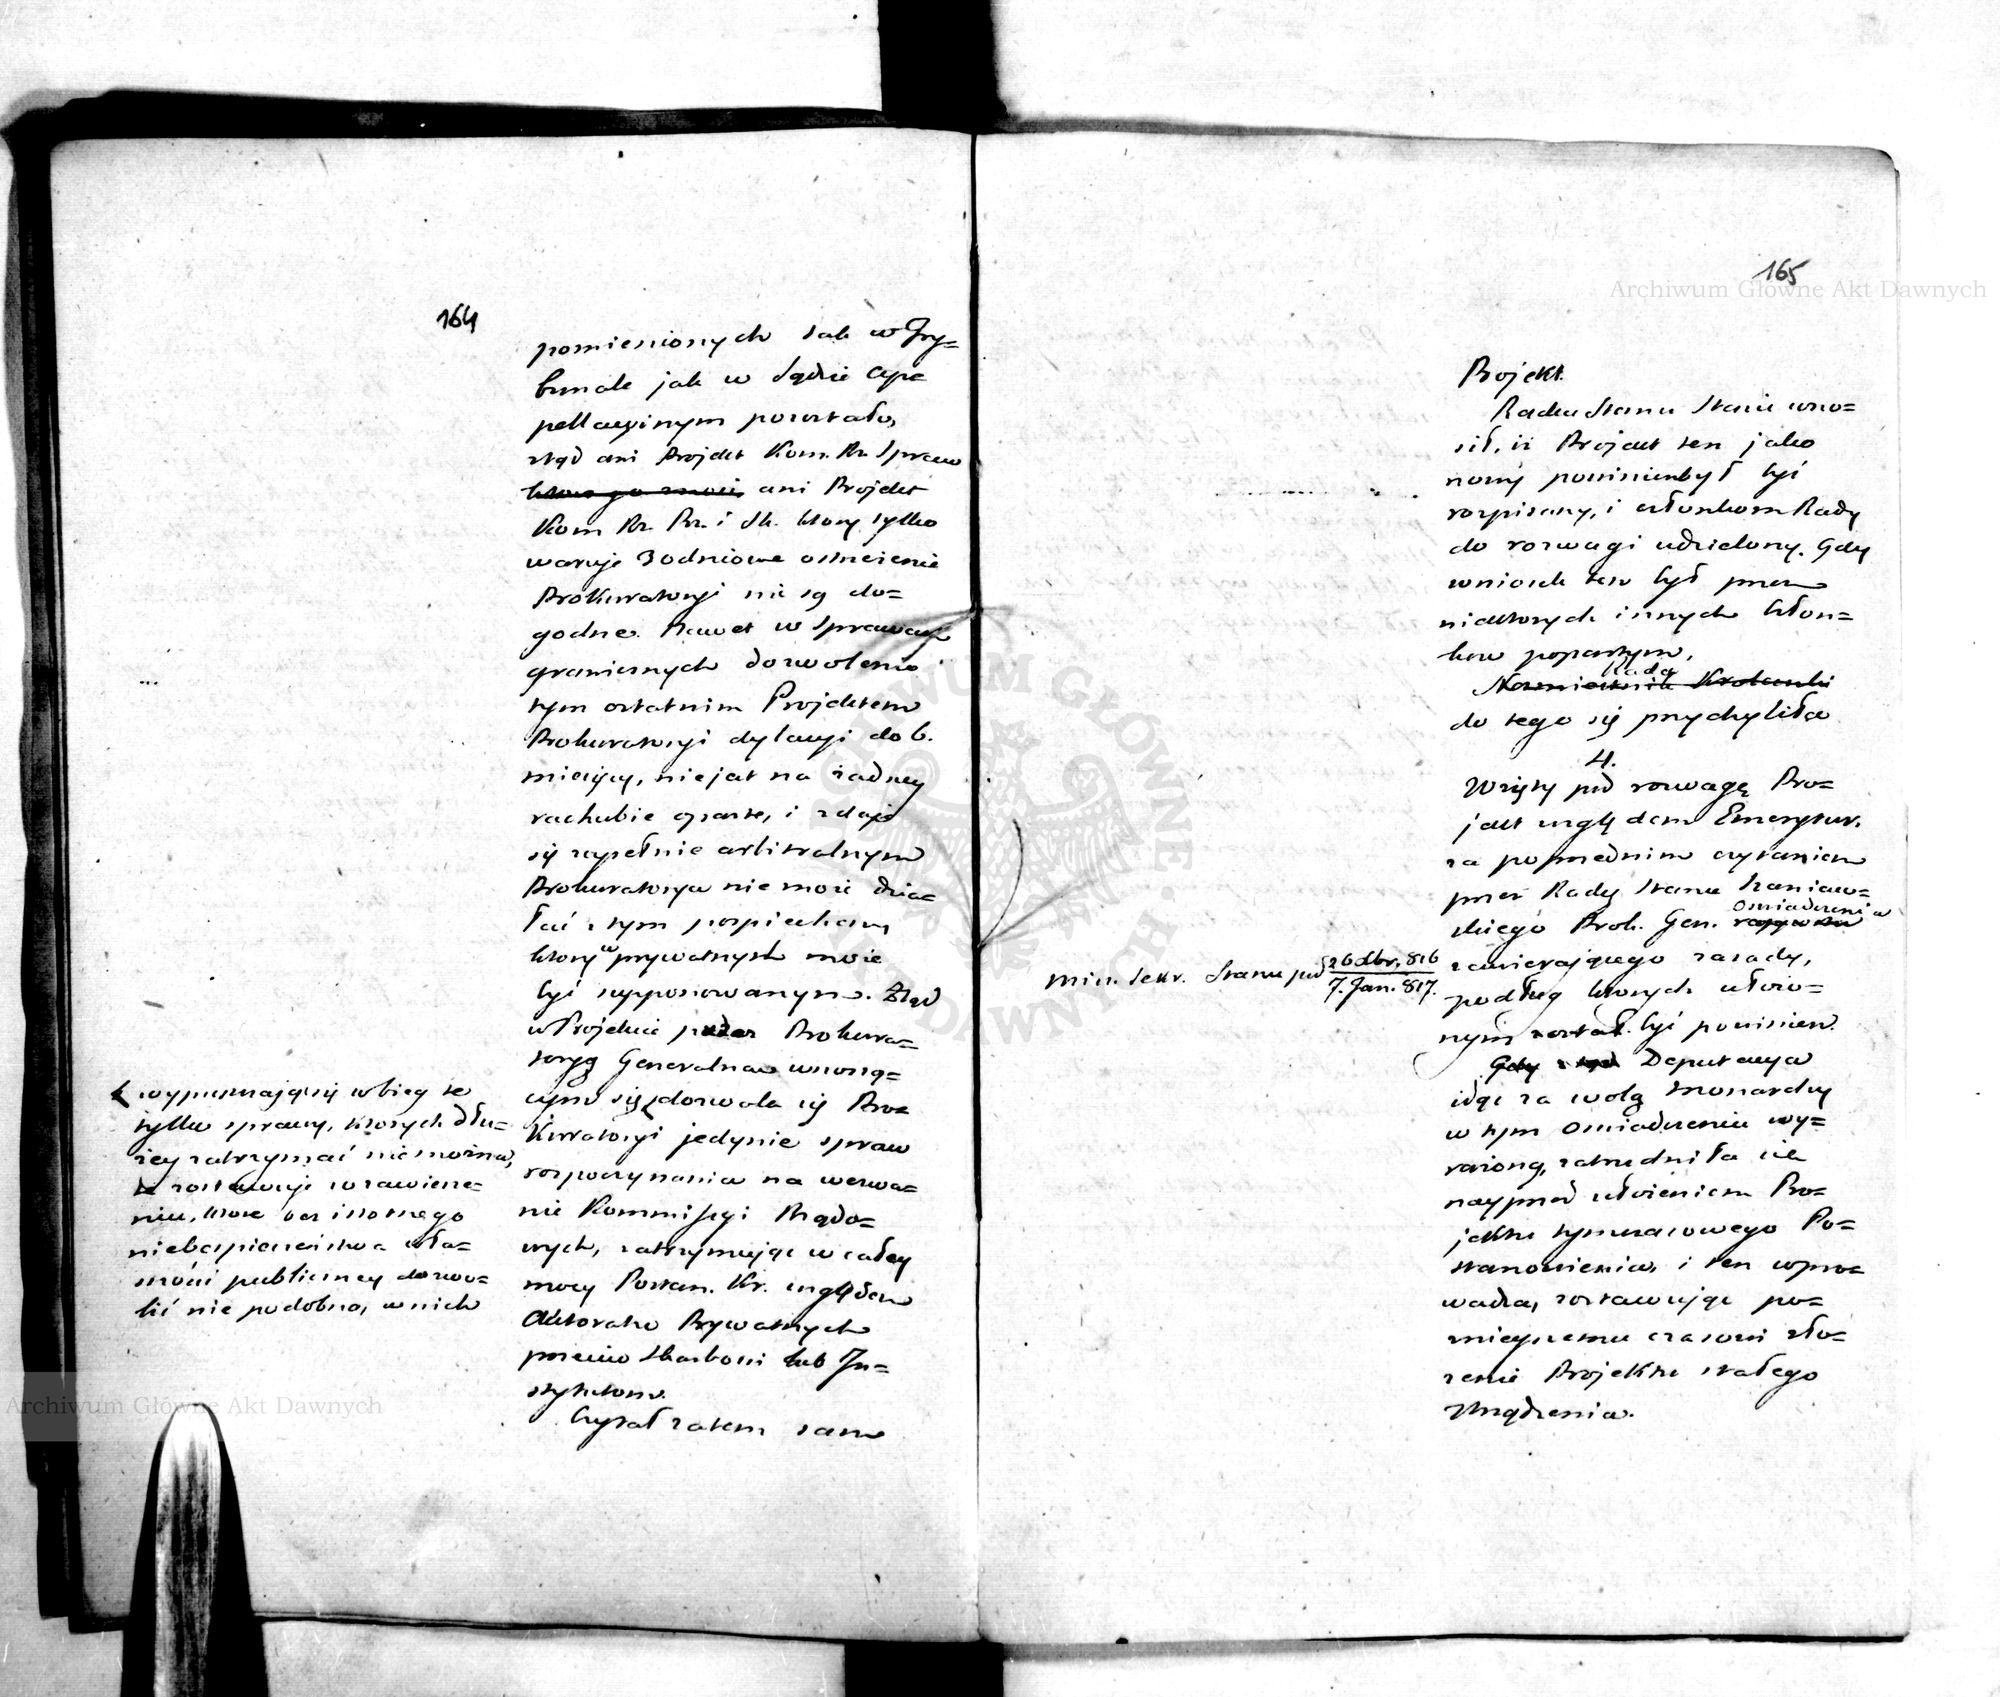 164
pomienionych tak w Try=
bunale jak w Sądzie Ape
pellacyinym pozostało,
ztąd ani Projekt Kom. Rz. Spraw
ani Projekt
Kom Rz. Prz. i Sk. ktory tylko
waruje 30dniowe ostrzeżenie
Prokuratoryi nie są do=
godne. Nawet w Sprawach
granicznych dozwolenie
tym ostatnim Projektem
Prokuratoryi dylacyi do 6.
miesięcy, nie jest na żadney
rachubie oparte, i zdaje
się zupełnie arbitralnym
Prokuratorya nie może dzia=
łać z tym pospiechem
ktory w prywatnych może
być supponowanym. Ztąd
w Projekcie przez Prokura=
toryą Generalna wnoszą=
cym się dozwala się Pro=
kuratoryi jedynie spraw
rozpoczynania na wezwa=
nie Kommissyi Rządo=
wych, zatrzymując w całey
mocy Postan. Kr. względem
Aktoratu Prywatnych
przeciw Skarbowi lub In=
stytutom.
Czytał zatem sam
wypuszczając się w bieg te
tylko sprawy, ktorych dłu=
żey zatrzymać nie można,
zostawuje w zawiesze=
niu, ktore bez istotnego
niebezpieczeństwa wła=
sności publiczney dozwo=
lić nie podobna, w nich
165
Projekt.
Radca Stanu Staszic wno=
sił, iż Projekt ten jako
nowy powinienby być
rozpisany, i członkom Rady
do rozwagi udzielony. Gdy
wniosek ten był przez
niektorych innych Człon=
kow popartym,
Rada
Namiestnik Krolewski
do tego się przychyliła
4.
Wzięty pod rozwagę Pro=
jekt względem Emerytur.
za poprzednim czytaniem
przez Radcę Stanu Szaniaw=
skiego Prok. Gen. oswiadczenia
zawierającego zasady,
podług ktorych ułożo=
nym został. być powinien.
Min. Sekr. Stanu pod 26 Xbr. 816
7. Jan. 817.
Gdy Deputacya
idąc za wolą Monarchy
w tym oswiadczeniu wy=
rażoną, zatrudniła się
nayprzod ułożeniem Pro=
jektu tymczasowego Po=
stanowienia, i ten wpro=
wadza, zostawując po=
znieyszemu czasowi zło=
żenie Projektu stałego
Urządzenia.
Archiwum Główne Akt Dawnych
Archiwum Główne Akt Dawnych
ARCHIWUM GŁÓWNE AKT DAWNYCH